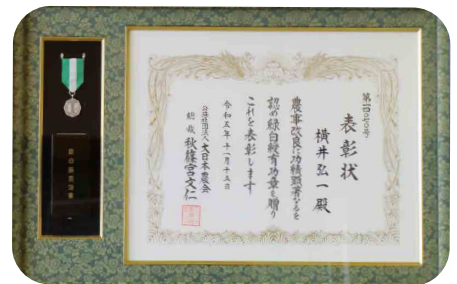 表彰状
横井弘一殿
農事改良に功績顕著なるを
認め緑白綬有功章を贈り
これを表彰します
令和五年十一月十五日
公益社団法人大日本農会
総裁 秋篠宮文仁